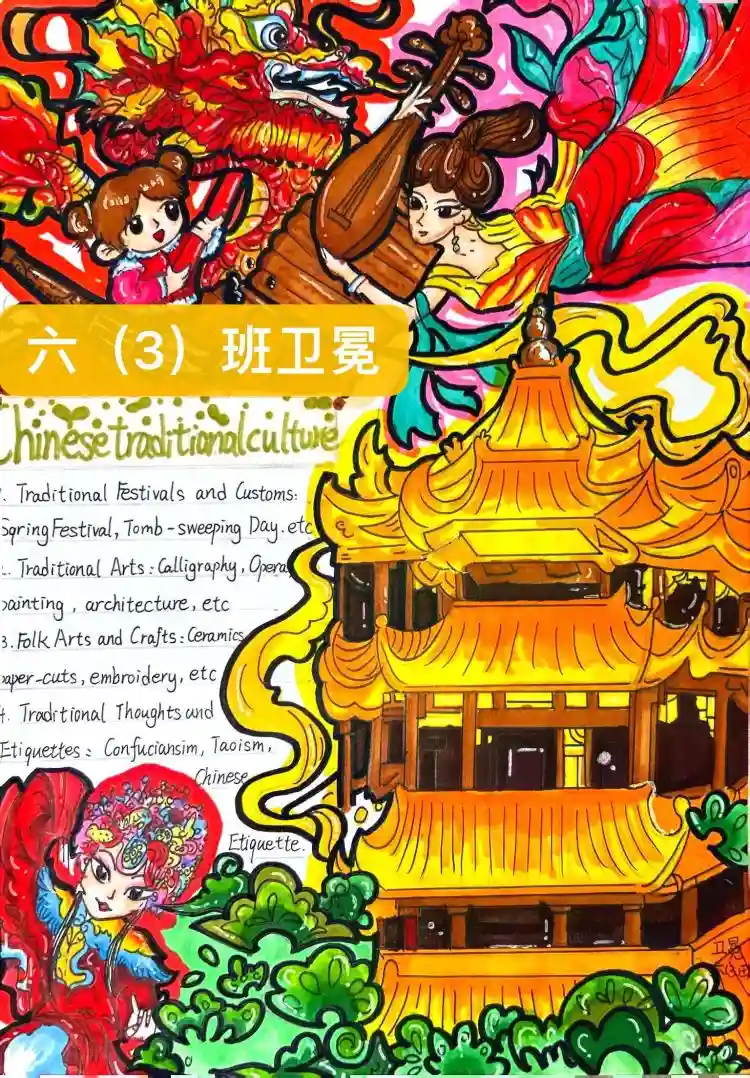 六（3）班卫冕
Chinese traditional culture
1. Traditional Festivals and Customs:
Sqring Festival, Tomb-sweeping Day. etc
2. Traditional Arts: Calligraphy, Opera,
painting, architecture, etc
3. Folk Arts and Crafts: Ceramics
paper-cuts, embroidery, etc
4. Traditional Thoughts and
Etiquettes: Confuciansim, Taoism,
Chinese
Etiquette.
卫冕